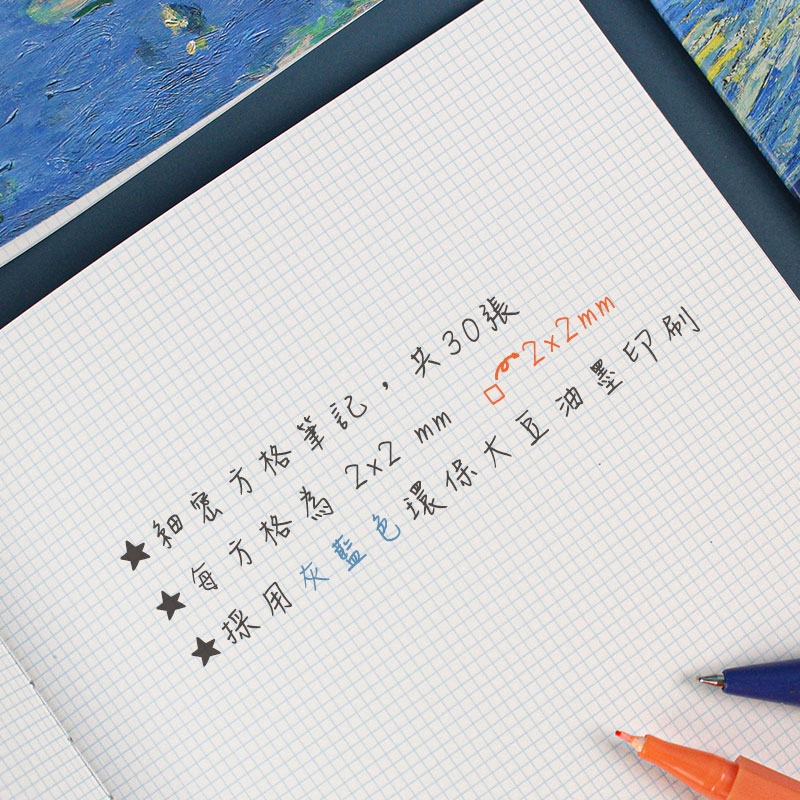 ★細密方格筆記，共30張
★每方格為 2x2 mm
2x2mm
★採用灰藍色環保大豆油墨印刷